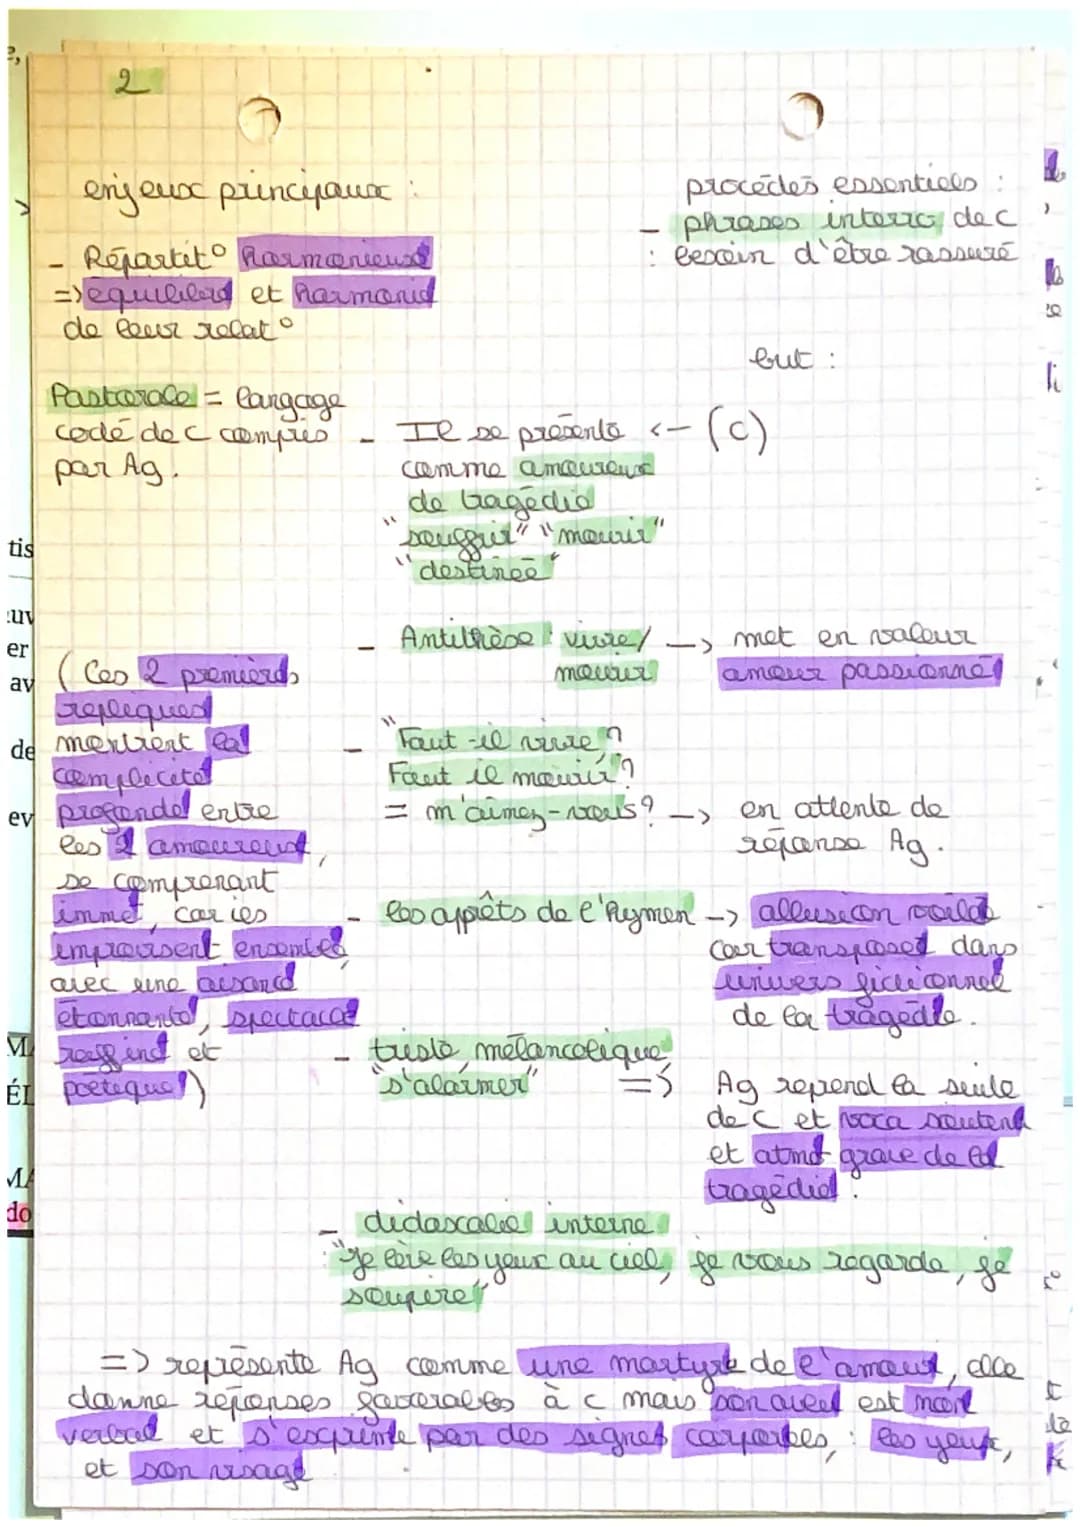 2
enjeux principaux :
- Répartit° harmonieuse
=> équilibre et harmonie
de leur relat°
procédés essentiels :
- phrases interro de C
: besoin d'être rassuré
but :
Pastorale = langage
codé de C compris
par Ag.
- Il se présente <- (C)
comme amoureux
de tragédie
"souffrir" "mourir"
"destinée"
- Antithèse : vivre/ -> met en valeur
mourir amour passionné
(Ces 2 premières
répliques
montrent la
complicité
profonde entre
les 2 amoureux,
se comprenant
immé, car ies
improvisent ensemble,
avec une aisance
étonnante, spectacle
raffiné et
poétique)
- "Faut-il vivre ?
Faut il mourir" ?
= m'aimez-vous ? -> en attente de
réponse Ag.
- les apprêts de l'hymen -> allusion voilée
car transposée dans
univers fictionnel
de la tragédie.
- triste, mélancolique,
"s'alarmer" => Ag reprend la seule
de C et voca soutenu
et atmo grave de la
tragédie.
- didascalie interne
: "je lève les yeux au ciel, je vous regarde, je
soupire"
=> représente Ag comme une martyre de l'amour, elle
donne réponses favorables à C mais son aveu est non
verbal et s'exprime par des signes corporels, : les yeux,
et son visage
tis
uv
er
av
de
ev
MA
ÉL
MA
do